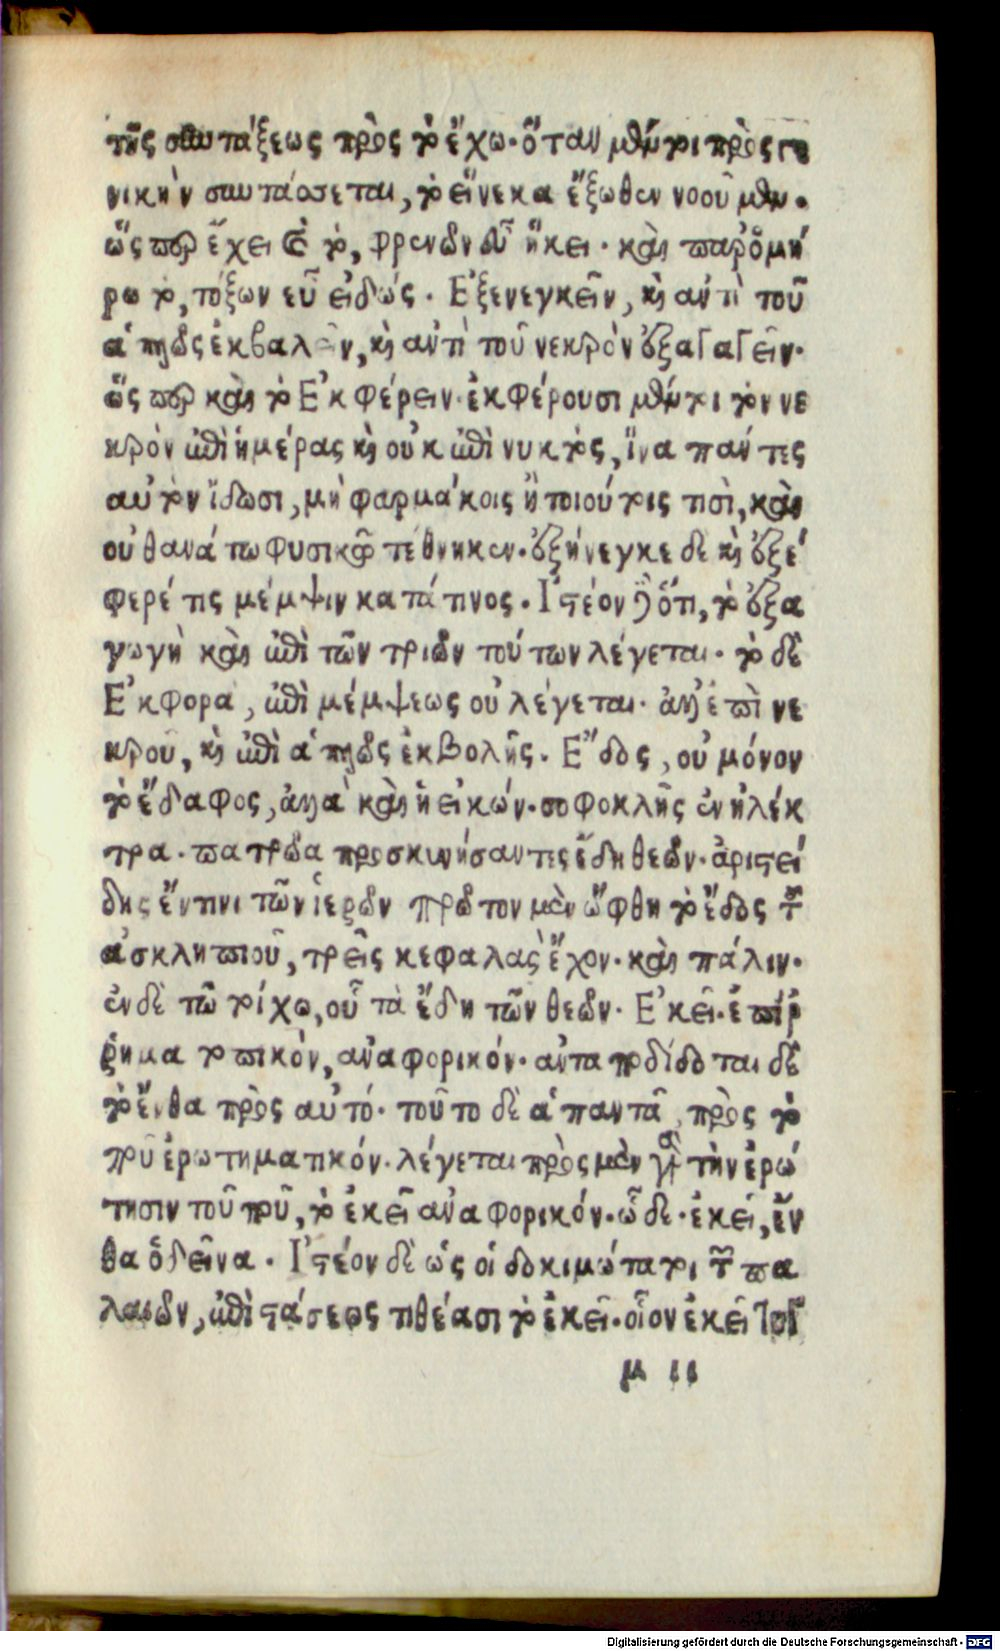 τῆς συντάξεως πρὸς τὸ ἔχω· ὅταν μέντοι πρὸς γε
νικὴν συντάσσεται, τὸ εἵνεκα ἔξωθεν νοούμεν·
ὥσπερ ἔχει καὶ τὸ, φρενῶν οὗ ἥκει· καὶ παρ' ὁμή
ρω τὸ, τόξων εὖ εἰδώς. Ἐξενεγκεῖν, καὶ ἀντὶ τοῦ
ἁπλῶς ἐκβαλεῖν, καὶ ἀντὶ τοῦ νεκρὸν ἐξαγαγεῖν·
ὥσπερ καὶ τὸ Ἐκφέρειν· ἐκφέρουσι μέντοι τὸν νε
κρὸν ἐπὶ ἡμέρας καὶ οὐκ ἐπὶ νυκτὸς, ἵνα πάντες
αὐτὸν ἴδωσι, μὴ φαρμάκοις ἢ τοιούτοις τισὶ, καὶ
οὐ θανάτω φυσικῶ τέθνηκεν· ἐξήνεγκε δὲ καὶ ἐξέ
φερέ τις μέμψιν κατά τινος. Ἰστέον δὲ ὅτι, τὸ ἐξα
γωγὴ καὶ ἐπὶ τῶν τριῶν τούτων λέγεται· τὸ δὲ
Ἐκφορά, ἐπὶ μέμψεως οὐ λέγεται· ἀλλ' ἐπὶ νε
κροῦ, καὶ ἐπὶ ἁπλῶς ἐκβολῆς. Ἕδος, οὐ μόνον
τὸ ἔδαφος, ἀλλὰ καὶ ἡ εἰκών· σοφοκλῆς ἐν ἠλέκ
τρα· πατρῶα προσκυνήσαντες ἕδη θεῶν· ἀριστεί
δης ἔν τινι τῶν ἱερῶν πρῶτον μὲν ὤφθη τὸ ἕδος τοῦ
ἀσκληπιοῦ, τρεῖς κεφαλὰς ἔχον· καὶ πάλιν·
ἐν δὲ τῶ τοίχω, οὗ τὰ ἕδη τῶν θεῶν. Ἐκεῖ· ἐπίρ
ῥημα τοπικὸν, ἀναφορικόν· ἀνταποδίδοται δὲ
τὸ ἔνθα πρὸς αὐτό· τοῦτο δὲ ἀπαντᾶ, πρὸς τὸ
ποῦ ἐρωτηματικόν· λέγεται πρὸς μὲν γὰρ τὴν ἐρώ
τησιν τοῦ ποῦ, τὸ ἐκεῖ ἀναφορικόν· ὧδε· ἐκεί, ἔν
θα ὁ δεῖνα. Ἰστέον δὲ ὡς οἱ δοκιμώτατοι τῶν πα
λαιῶν, ἐπὶ στάσεως τιθέασι τὸ ἐκεῖ· οἷον ἐκεῖ
μ ιι
Digitalisierung gefördert durch die Deutsche Forschungsgemeinschaft - DFG